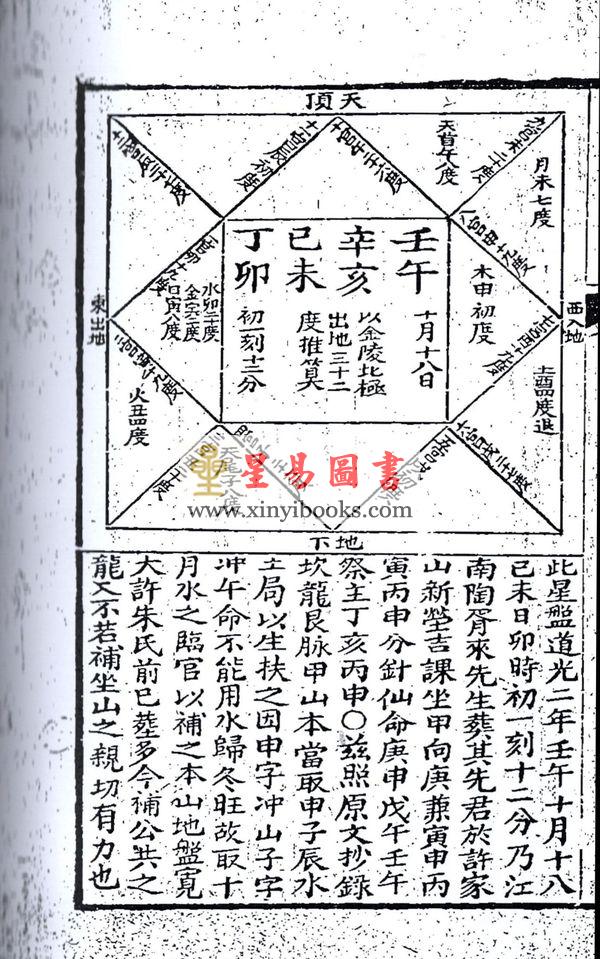 天頂
十一宮辰初度
十宮午二十六度
天首午度
九宮未二十度
月未七度
八宮申十九度
木申初度
西入地
土酉四度退
東出地
水卯二度
日寅八度
火丑四度
壬午
辛亥
己未
丁卯
十月十八日
以金陵北極
出地三十二
度推算
初一刻十二分
地下
星易圖書
www.xinyibooks.com
此星盤道光二年壬午十月十八
己未日卯時初一刻十二分乃江
南陶胥來先生葬其先君於許家
山新塋吉課坐甲向庚兼寅申丙
寅丙申分針仙命庚申戊午壬午
祭主丁亥丙申〇茲照原文抄錄
坎龍艮脉甲山本當取申子辰水
土局以生扶之因申字冲山子字
冲午命不能用水歸冬旺故取十
月水之臨官以補之本山地盤寬
大許朱氏前已塟多今補公共之
龍又不若補坐山之親切有力也